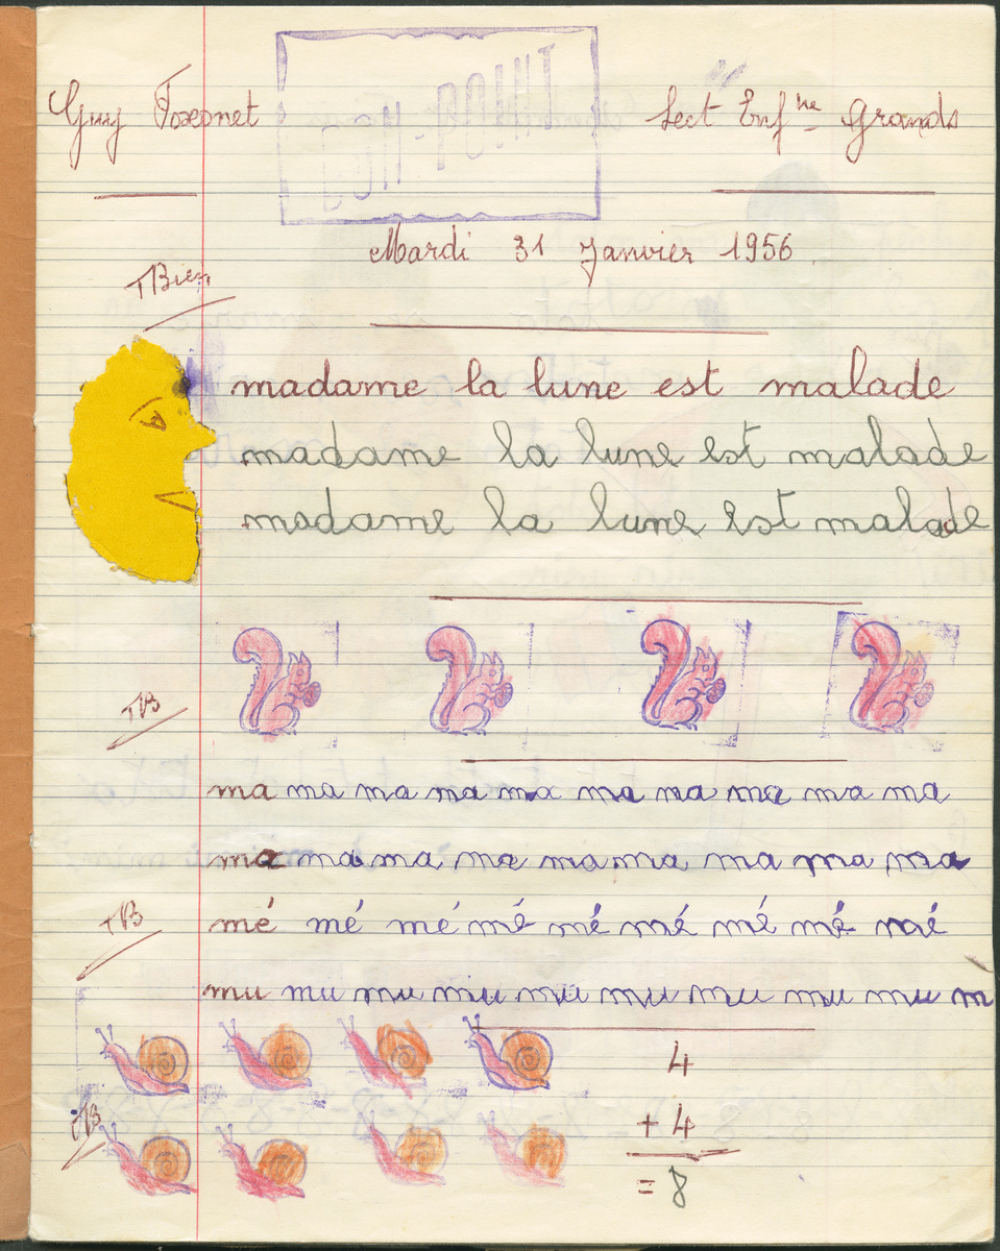 Guy Sect Enf^ne Grands
BON-POINT
Mardi 31 Janvier 1956
TBien
madame la lune est malade
madame la lune est malade
madame la lune est malade
TB
ma ma ma ma ma ma ma ma ma ma
ma ma ma ma ma ma ma ma ma
TB
mé mé mé mé mé mé mé mé mé
mu mu mu mu mu mu mu mu mu m
4
TB
+ 4
= 8